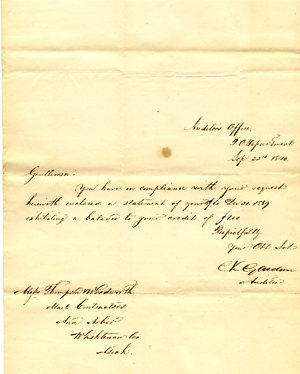 Auditors Office,
P.O. Department
Sep 22d 1840.
Gentlemen:
You have in compliance with your request
herewith enclosed a statement of your to Dec 31. 1839
exhibiting a balance to your credit of
Respectfully
Your Obt Svt
Auditor
Messrs Thompson Wordsworth
Mail Contractors
Ann Arbor
Washtenaw Co
Mich.